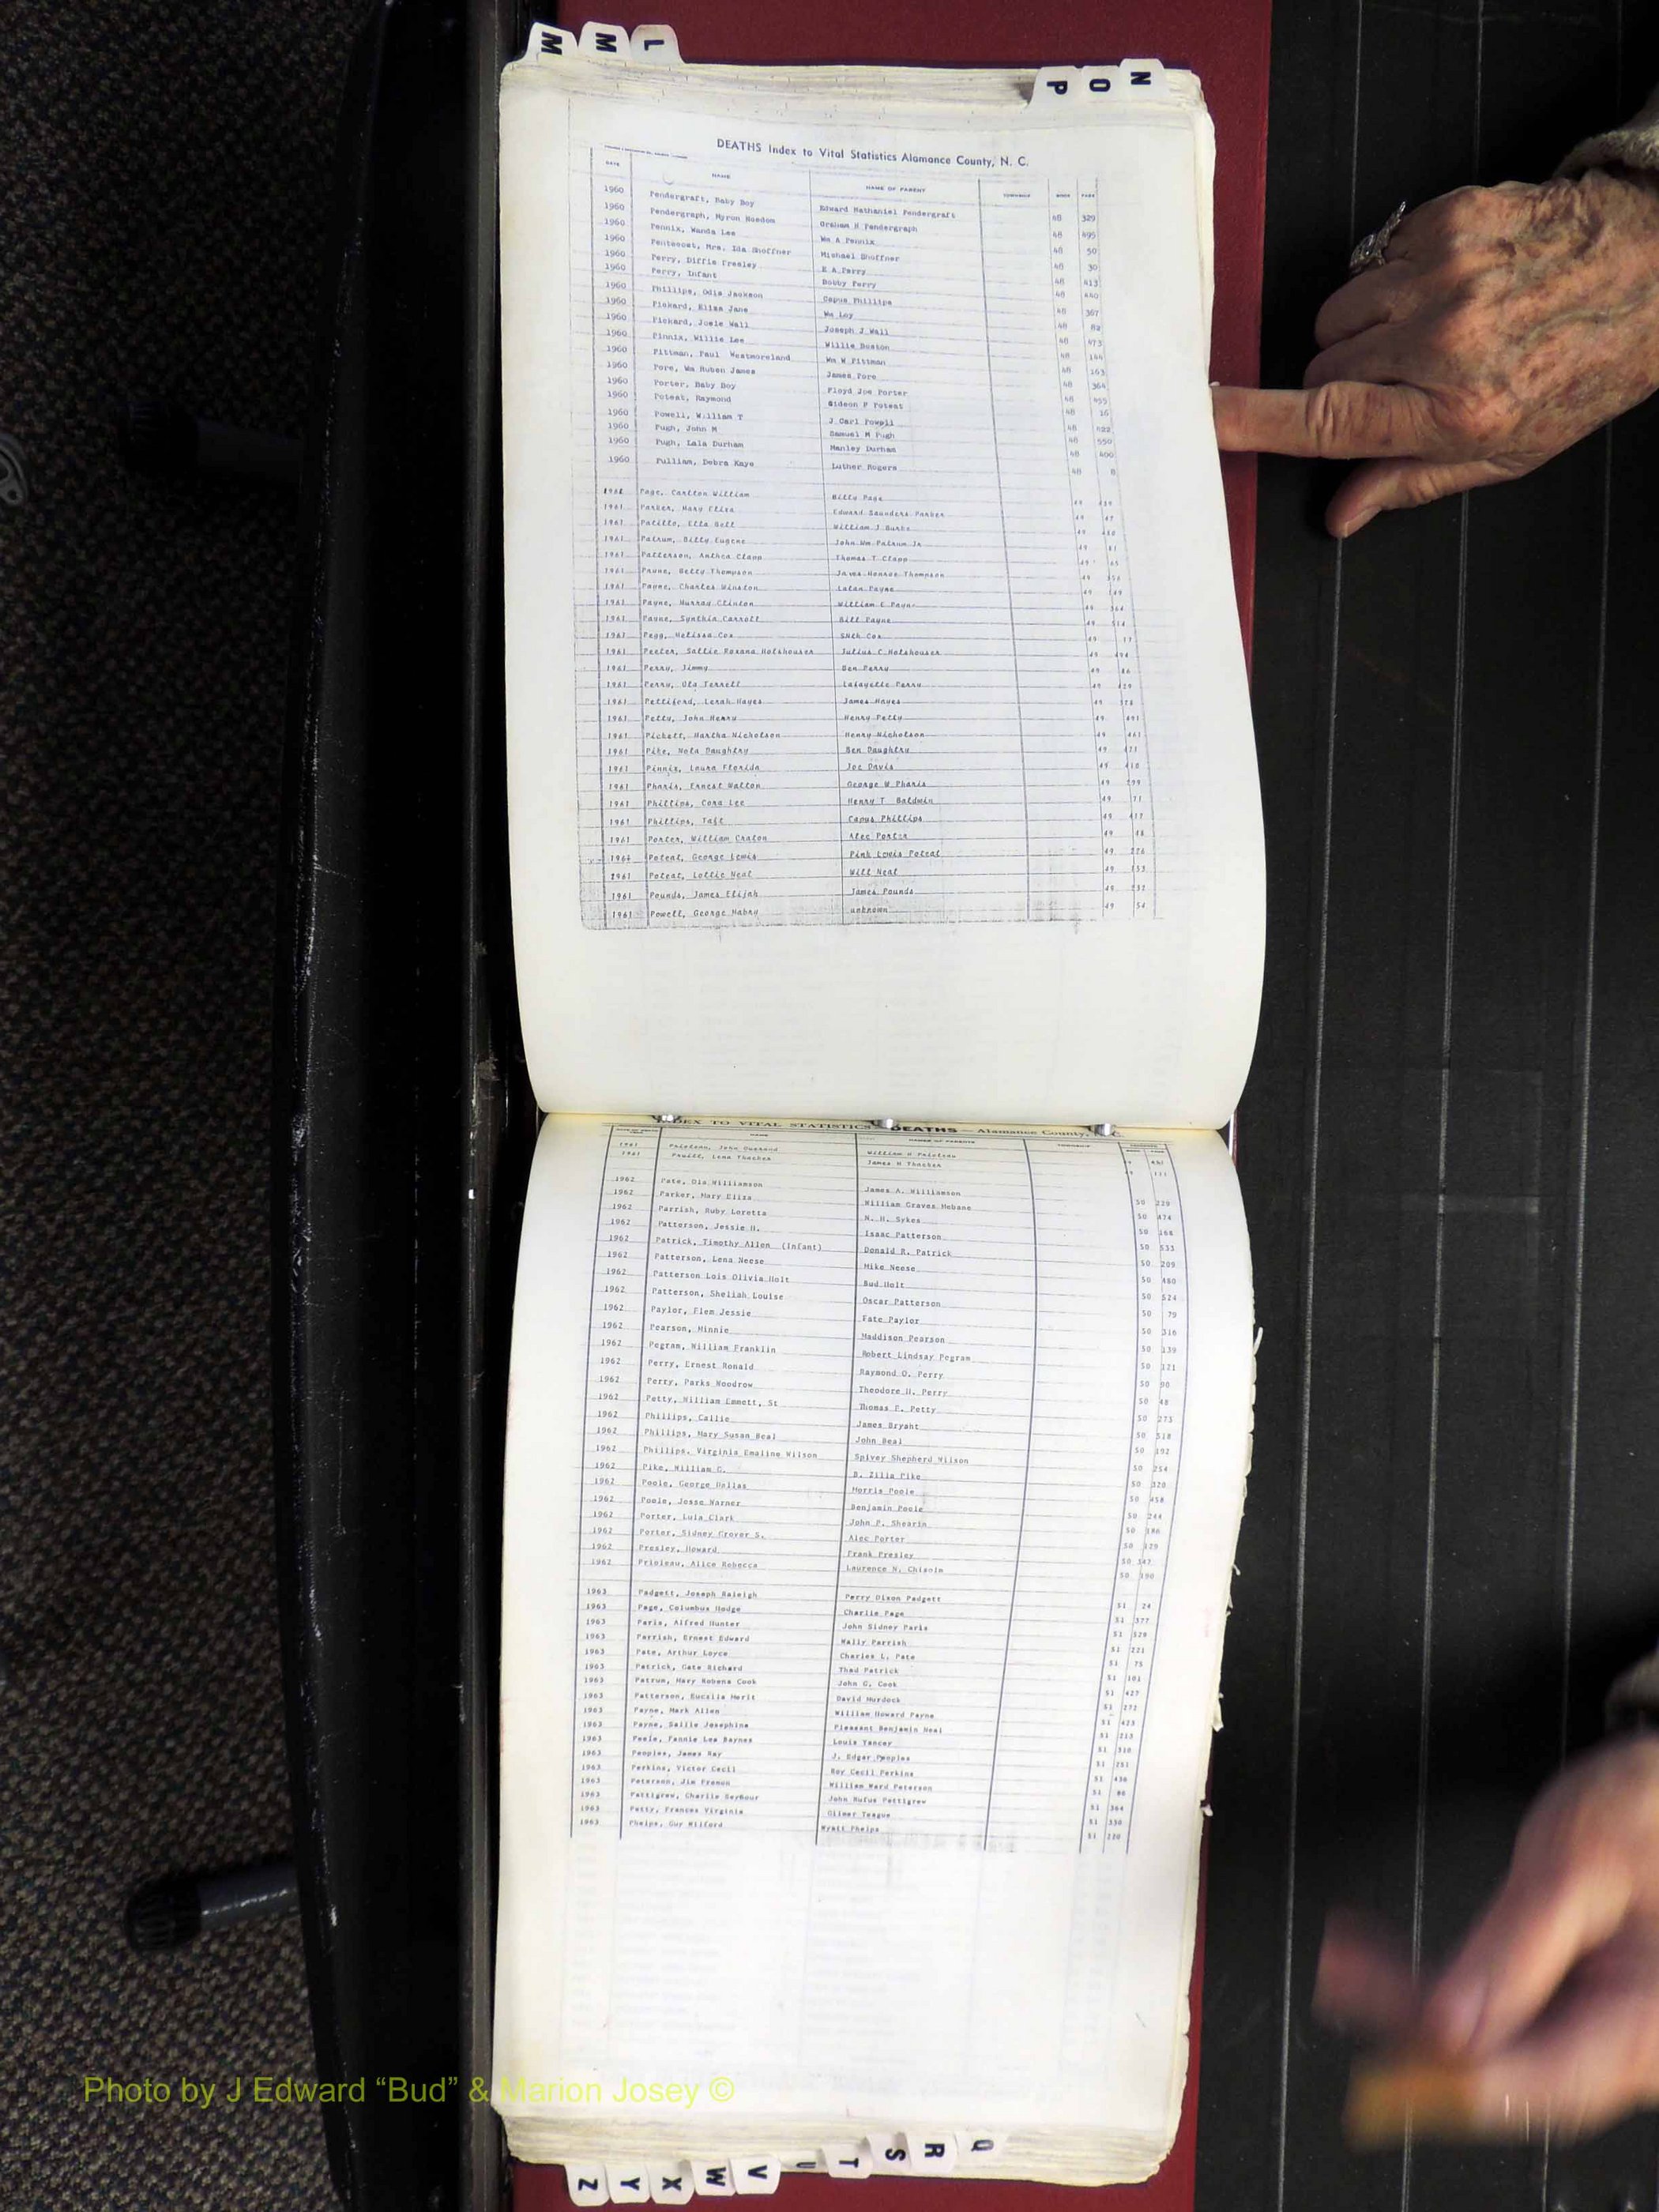 M M L
P O N
DEATHS Index to Vital Statistics Alamance County, N. C.
DATE NAME NAME OF PARENT TOWNSHIP BOOK PAGE
1960 Pendergraft, Baby Boy Edward Nathaniel Pendergraft 48 329
1960 Pendergraph, Myron Hoedom Graham H Pendergraph 48 495
1960 Pennix, Wanda Lee Wm A Pennix 48 50
1960 Pentecost, Mrs. Ida Shoffner Michael Shoffner 48 30
1960 Perry, Diffie Presley E A Perry 48 413
1960 Perry, Infant Bobby Perry 48 440
1960 Phillips, Odis Jackson Capus Phillips 48 367
1960 Pickard, Eliza Jane Wm Loy 48 82
1960 Pickard, Josie Wall Joseph J Wall 48 473
1960 Pinnix, Willie Lee Willie Boston 48 144
1960 Pittman, Paul Westmoreland Wm W Pittman 48 163
1960 Pore, Wm Ruben James James Pore 48 364
1960 Porter, Baby Boy Floyd Joe Porter 48 455
1960 Poteat, Raymond Gideon P Poteat 48 16
1960 Powell, William T J Carl Powell 48 422
1960 Pugh, John M Samuel M Pugh 48 550
1960 Pugh, Lala Durham Manley Durham 48 400
1960 Pulliam, Debra Kaye Luther Rogers 48 8
1961 Page, Carlton William Billy Page 49
1961 Parker, Mary Eliza Edward Saunders Parker 49 47
1961 Patillo, Ella Bell William J Burks 49
1961 Patrum, Billy Eugene John Wm Patrum Jr 49 61
1961 Patterson, Anthea Clapp Thomas T Clapp 49 65
1961 Payne, Betty Thompson James Monroe Thompson 49
1961 Payne, Charles Winston Latan Payne 49
1961 Payne, Murray Clinton William E Payne 49
1961 Payne, Synthia Carroll Bill Payne 49
1961 Pegg, Melissa Cox Cox 49
1961 Peeler, Sallie Roxana Holshouser Julius C Holshouser 49
1961 Perry, Jimmy Ben Perry 49
1961 Perry, Ola Terrell Lafayette Perry 49
1961 Pettiford, Lerah Hayes James Hayes 49
1961 Petty, John Henry Henry Petty 49
1961 Pickett, Martha Nicholson Henry Nicholson 49
1961 Pike, Nola Daughtry Ben Daughtry 49
1961 Pinnix, Laura Florida Joe Davis 49
1961 Pharis, Ernest Walton George W Pharis 49
1961 Phillips, Cora Lee Henry T Baldwin 49 71
1961 Phillips, Taft Capus Phillips 49
1961 Porter, William Craton Alec Porter 49
1961 Poteat, George Lewis Pink Lewis Poteat 49
1961 Poteat, Lottie Neal Will Neal 49
1961 Pounds, James Elijah James Pounds 49
1961 Powell, George Mabry unknown 49 54
INDEX TO VITAL STATISTICS — DEATHS — Alamance County, N. C.
NAME NAMES OF PARENTS TOWNSHIP
1961 Prioleau, John William H Prioleau
1961 Pruitt, Lena Thacker James H Thacker
1962 Pate, Ola Williamson James A. Williamson 50 229
1962 Parker, Mary Eliza William Graves Mebane 50 474
1962 Parrish, Ruby Loretta N. H. Sykes 50 168
1962 Patterson, Jessie H. Isaac Patterson 50 533
1962 Patrick, Timothy Allen (Infant) Donald R. Patrick 50 209
1962 Patterson, Lena Neese Mike Neese 50 480
1962 Patterson Lois Olivia Holt Bud Holt 50 524
1962 Patterson, Sheliah Louise Oscar Patterson 50 79
1962 Paylor, Flem Jessie Fate Paylor 50 316
1962 Pearson, Minnie Maddison Pearson 50 139
1962 Pegram, William Franklin Robert Lindsay Pegram 50 121
1962 Perry, Ernest Ronald Raymond O. Perry 50 90
1962 Perry, Parks Woodrow Theodore H. Perry 50 48
1962 Petty, William Emmett, St Thomas P. Petty 50 273
1962 Phillips, Callie James Bryant 50 518
1962 Phillips, Mary Susan Beal John Beal 50 192
1962 Phillips, Virginia Emaline Wilson Spivey Shepherd Wilson 50 254
1962 Pike, William C. D. Zilia Pike 50 320
1962 Poole, George Hollas Morris Poole 50 458
1962 Poole, Jesse Warner Benjamin Poole 50 244
1962 Porter, Lula Clark John P. Shearin 50 186
1962 Porter, Sidney Grover S. Alec Porter 50 129
1962 Presley, Howard Frank Presley 50 347
1962 Prioleau, Alice Rebecca Laurence N. Chisolm 50 190
1963 Padgett, Joseph Raleigh Perry Dixon Padgett 51 24
1963 Page, Columbus Hodge Charlie Page 51 377
1963 Paris, Alfred Hunter John Sidney Paris 51 520
1963 Parrish, Ernest Edward Wally Parrish 51 221
1963 Pate, Arthur Loyce Charles L. Pate 51 75
1963 Patrick, Gate Richard Thad Patrick 51 101
1963 Patrum, Mary Robena Cook John G. Cook 51 427
1963 Patterson, Euczila Merit David Murdock 51 272
1963 Payne, Mark Allen William Howard Payne 51 423
1963 Payne, Sallie Josephine Pleasant Benjamin Neal 51 213
1963 Peele, Fannie Lea Baynes Louis Yancey 51 310
1963 Peoples, James Ray J. Edgar Peoples 51 251
1963 Perkins, Victor Cecil Roy Cecil Perkins 51 436
1963 Peterson, Jim Fremon William Ward Peterson 51 86
1963 Pettigrew, Charlie Seymour John Rufus Pettigrew 51 364
1963 Petty, Frances Virginia Gilmer Teague 51 330
1963 Phelps, Guy Wilford Wyatt Phelps 51 220
Photo by J Edward “Bud” & Marion Josey ©
Z Y X W V U T S R Q